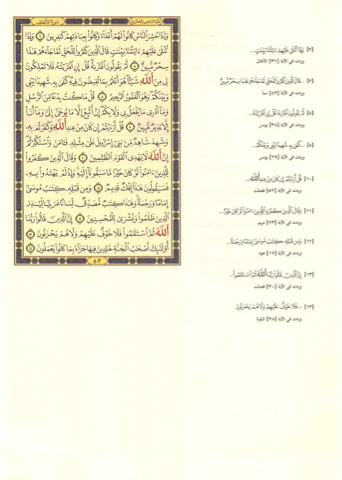 سورة الأحقاف
وَإِذَا حُشِرَ النَّاسُ كَانُوا لَهُمْ أَعْدَاءً وَكَانُوا بِعِبَادَتِهِمْ كَافِرِينَ ٦ وَإِذَا
تُتْلَى عَلَيْهِمْ آيَاتُنَا بَيِّنَاتٍ قَالَ الَّذِينَ كَفَرُوا لِلْحَقِّ لَمَّا جَاءَهُمْ هَذَا
سِحْرٌ مُّبِينٌ ٧ أَمْ يَقُولُونَ افْتَرَاهُ قُلْ إِنِ افْتَرَيْتُهُ فَلَا تَمْلِكُونَ
لِي مِنَ اللَّهِ شَيْئًا هُوَ أَعْلَمُ بِمَا تُفِيضُونَ فِيهِ كَفَى بِهِ شَهِيدًا بَيْنِي
وَبَيْنَكُمْ وَهُوَ الْغَفُورُ الرَّحِيمُ ٨ قُلْ مَا كُنتُ بِدْعًا مِّنَ الرُّسُلِ
وَمَا أَدْرِي مَا يُفْعَلُ بِي وَلَا بِكُمْ إِنْ أَتَّبِعُ إِلَّا مَا يُوحَى إِلَيَّ وَمَا أَنَا
إِلَّا نَذِيرٌ مُّبِينٌ ٩ قُلْ أَرَأَيْتُمْ إِن كَانَ مِنْ عِندِ اللَّهِ وَكَفَرْتُم بِهِ
وَشَهِدَ شَاهِدٌ مِّن بَنِي إِسْرَائِيلَ عَلَى مِثْلِهِ فَآمَنَ وَاسْتَكْبَرْتُمْ
إِنَّ اللَّهَ لَا يَهْدِي الْقَوْمَ الظَّالِمِينَ ١٠ وَقَالَ الَّذِينَ كَفَرُوا
لِلَّذِينَ آمَنُوا لَوْ كَانَ خَيْرًا مَّا سَبَقُونَا إِلَيْهِ وَإِذْ لَمْ يَهْتَدُوا بِهِ
فَسَيَقُولُونَ هَذَا إِفْكٌ قَدِيمٌ ١١ وَمِن قَبْلِهِ كِتَابُ مُوسَى
إِمَامًا وَرَحْمَةً وَهَذَا كِتَابٌ مُّصَدِّقٌ لِّسَانًا عَرَبِيًّا لِّيُنذِرَ
الَّذِينَ ظَلَمُوا وَبُشْرَى لِلْمُحْسِنِينَ ١٢ إِنَّ الَّذِينَ قَالُوا رَبُّنَا
اللَّهُ ثُمَّ اسْتَقَامُوا فَلَا خَوْفٌ عَلَيْهِمْ وَلَا هُمْ يَحْزَنُونَ ١٣
أُولَئِكَ أَصْحَابُ الْجَنَّةِ خَالِدِينَ فِيهَا جَزَاءً بِمَا كَانُوا يَعْمَلُونَ ١٤
٥٠٣
[٧] وَإِذَا تُتْلَى عَلَيْهِمْ آيَاتُنَا بَيِّنَاتٍ...
وردت في الآية
[٧] ...قَالَ الَّذِينَ كَفَرُوا لِلْحَقِّ لَمَّا جَاءَهُمْ هَذَا سِحْرٌ مُّبِينٌ
وردت في الآية سبأ
[٨] أَمْ يَقُولُونَ افْتَرَاهُ قُلْ إِنِ افْتَرَيْتُهُ...
وردت في الآية
[٨] ...كَفَى بِهِ شَهِيدًا بَيْنِي وَبَيْنَكُمْ...
وردت في الآية
[١٠] قُلْ أَرَأَيْتُمْ إِن كَانَ مِنْ عِندِ اللَّهِ...
وردت في الآية [٥٢] فصلت
[١١] وَقَالَ الَّذِينَ كَفَرُوا لِلَّذِينَ آمَنُوا لَوْ كَانَ خَيْرًا...
وردت في الآية مريم
[١٢] وَمِن قَبْلِهِ كِتَابُ مُوسَى إِمَامًا وَرَحْمَةً...
وردت في الآية [١٧] هود
[١٣] إِنَّ الَّذِينَ قَالُوا رَبُّنَا اللَّهُ ثُمَّ اسْتَقَامُوا...
وردت في الآية [٣٠] فصلت
[١٣] ...فَلَا خَوْفٌ عَلَيْهِمْ وَلَا هُمْ يَحْزَنُونَ
وردت في الآية [٣٨] البقرة